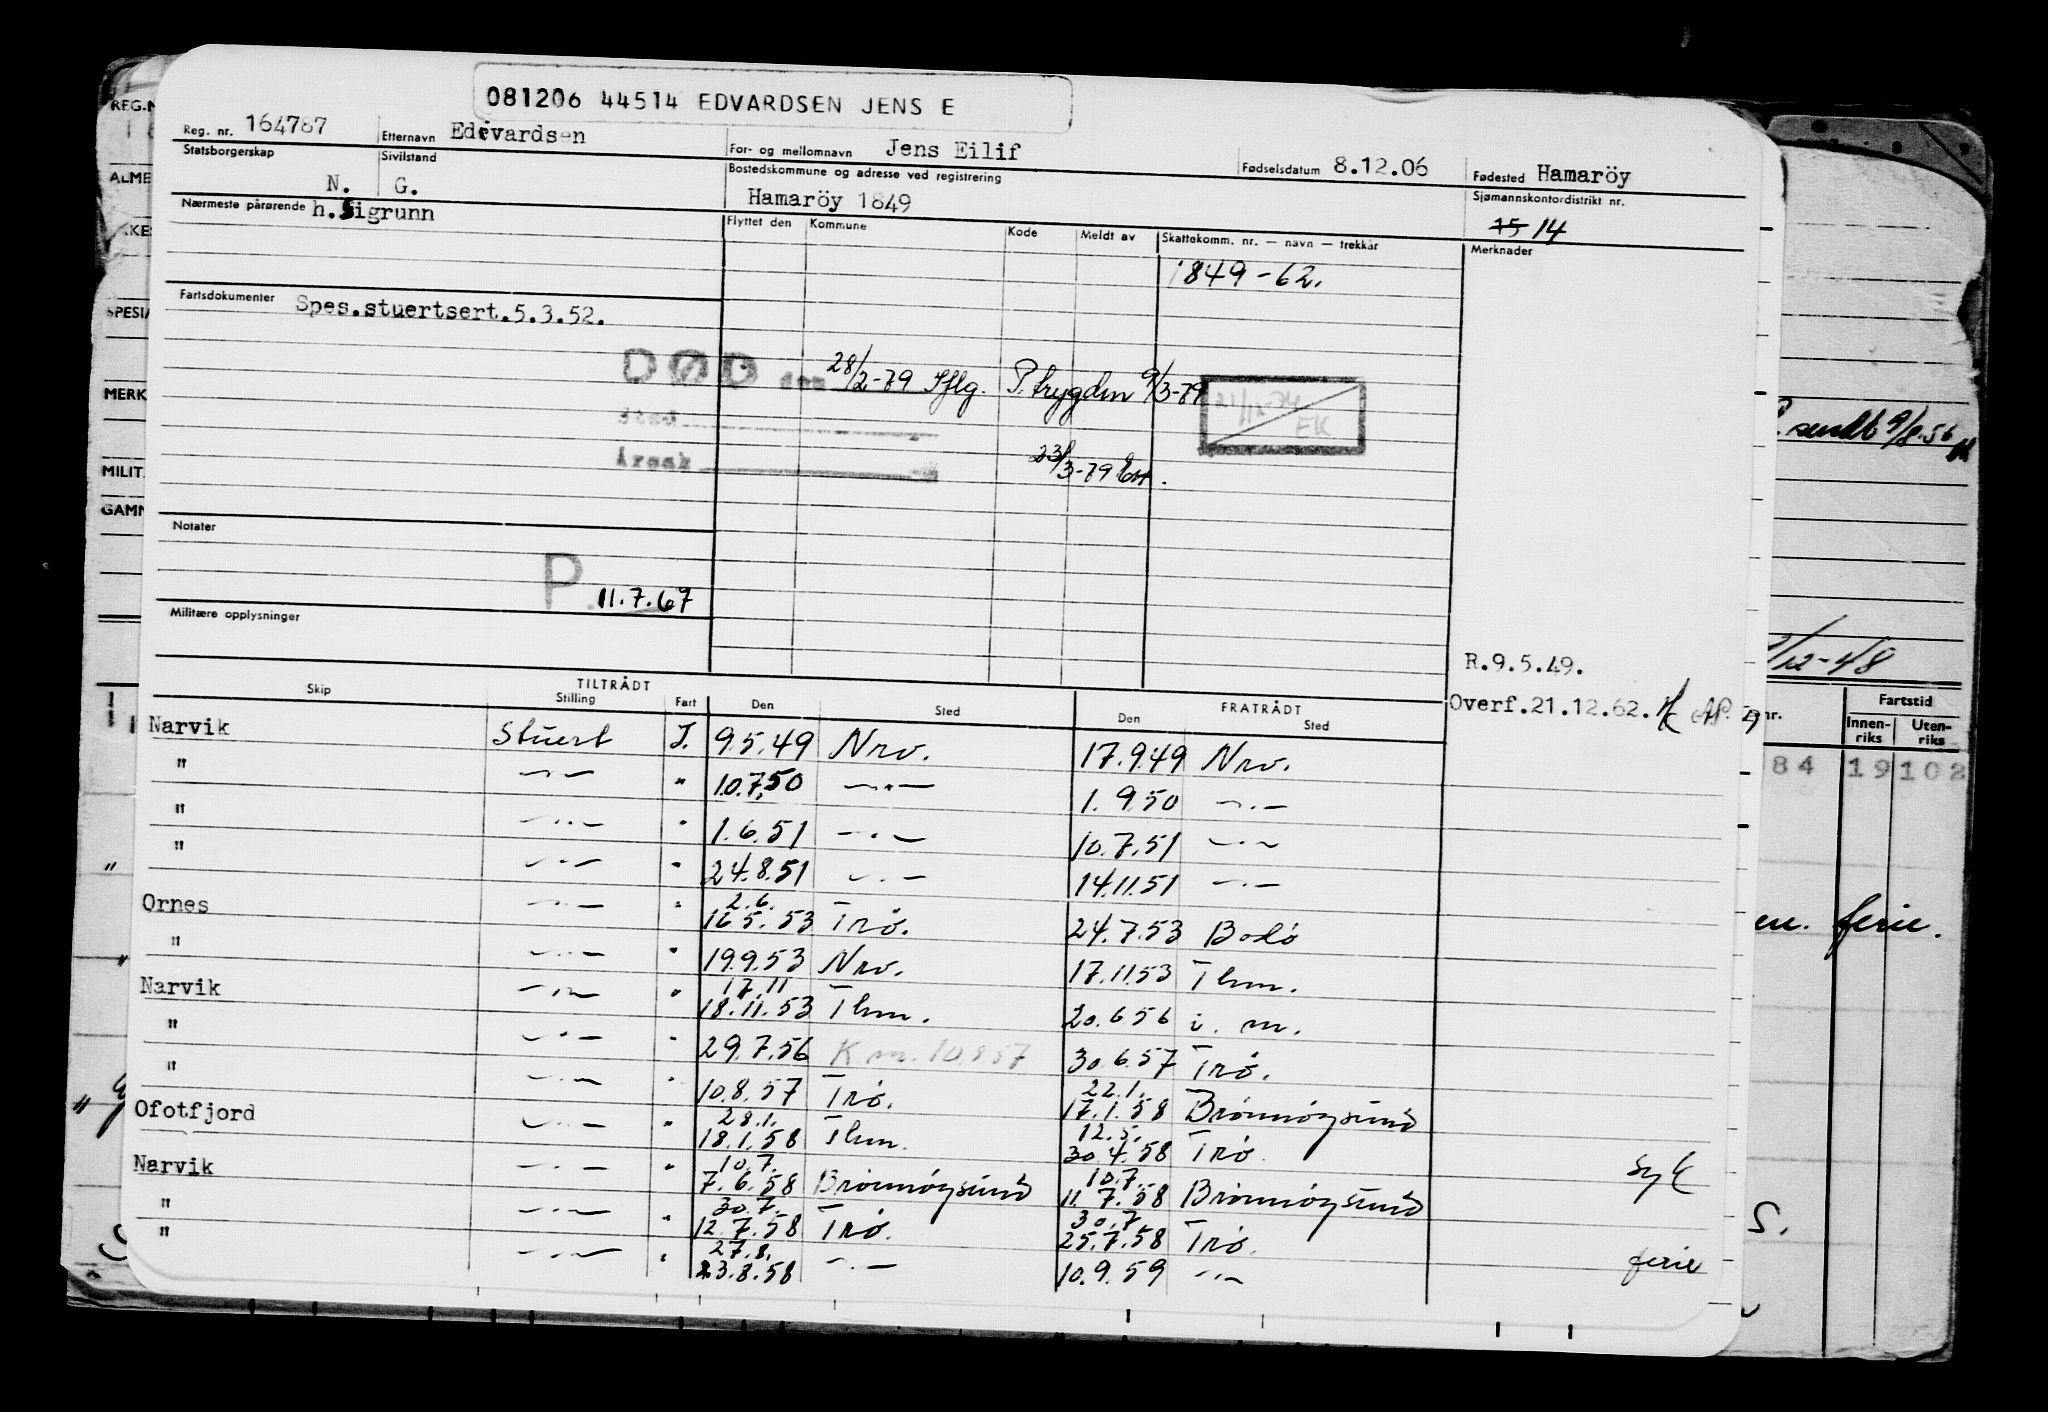 081206 44514 EDVARDSEN JENS E
Reg. nr. 164787 Etternavn Edvardsen For- og mellomnavn Jens Eilif Fødselsdatum 8.12.06 Fødested Hamaröy
Statsborgerskap N. Sivilstand G. Bostedskommune og adresse ved registrering Hamaröy 1849 Sjømannskontordistrikt nr. 15 14
Nærmeste pårørende h. Sigrunn Flyttet den Kommune Kode Meldt av Skattekomm. nr. — navn — trekkår Merknader
1849-62.
Fartsdokumenter Spes.stuertsert.5.3.52.
DØD den 28/2-79 Iflg. P.trygden 9/3-79
Sted 21/12-74 EK
Årsak 23/3-79
Notater
P 11.7.67
Militære opplysninger
R.9.5.49.
Overf.21.12.62.
TILTRÅDT FRATRÅDT
Skip Stilling Fart Den Sted Den Sted
Narvik Stuert I. 9.5.49 Nrv. 17.9.49 Nrv.
" —"— " 10.7.50 —"— 1.9.50 —"—
" —"— " 1.6.51 —"— 10.7.51 —"—
" —"— " 24.8.51 —"— 14.11.51 —"—
2.6.
Ornes —"— " 16.5.53 Trø. 24.7.53 Bodø
" —"— " 19.9.53 Nrv. 17.11.53 Thm.
17.11
Narvik —"— " 18.11.53 Thm. 20.6.56 i. m.
" —"— " 29.7.56 K.m. 10.8.57 30.6.57 Trø.
22.1.
" —"— " 10.8.57 Trø. 17.1.58 Brønnøysund
28.1. 12.5.
Ofotfjord —"— " 18.1.58 Thm. 30.4.58 Trø. syk
10.7. 10.7.
Narvik —"— " 7.6.58 Brønnøysund 11.7.58 Brønnøysund
30.7. 30.7
" —"— " 12.7.58 Trø. 25.7.58 Trø. ferie
27.8.
" —"— " 23.8.58 —"— 10.9.59 —"—
REG.N
ALME
SPESIA
MERK
MILIT.
GAMN
sendt 9/8.56
/12-48
nr. Fartstid
Innen-riks Uten-riks
84 19 102
en. ferie.
S.